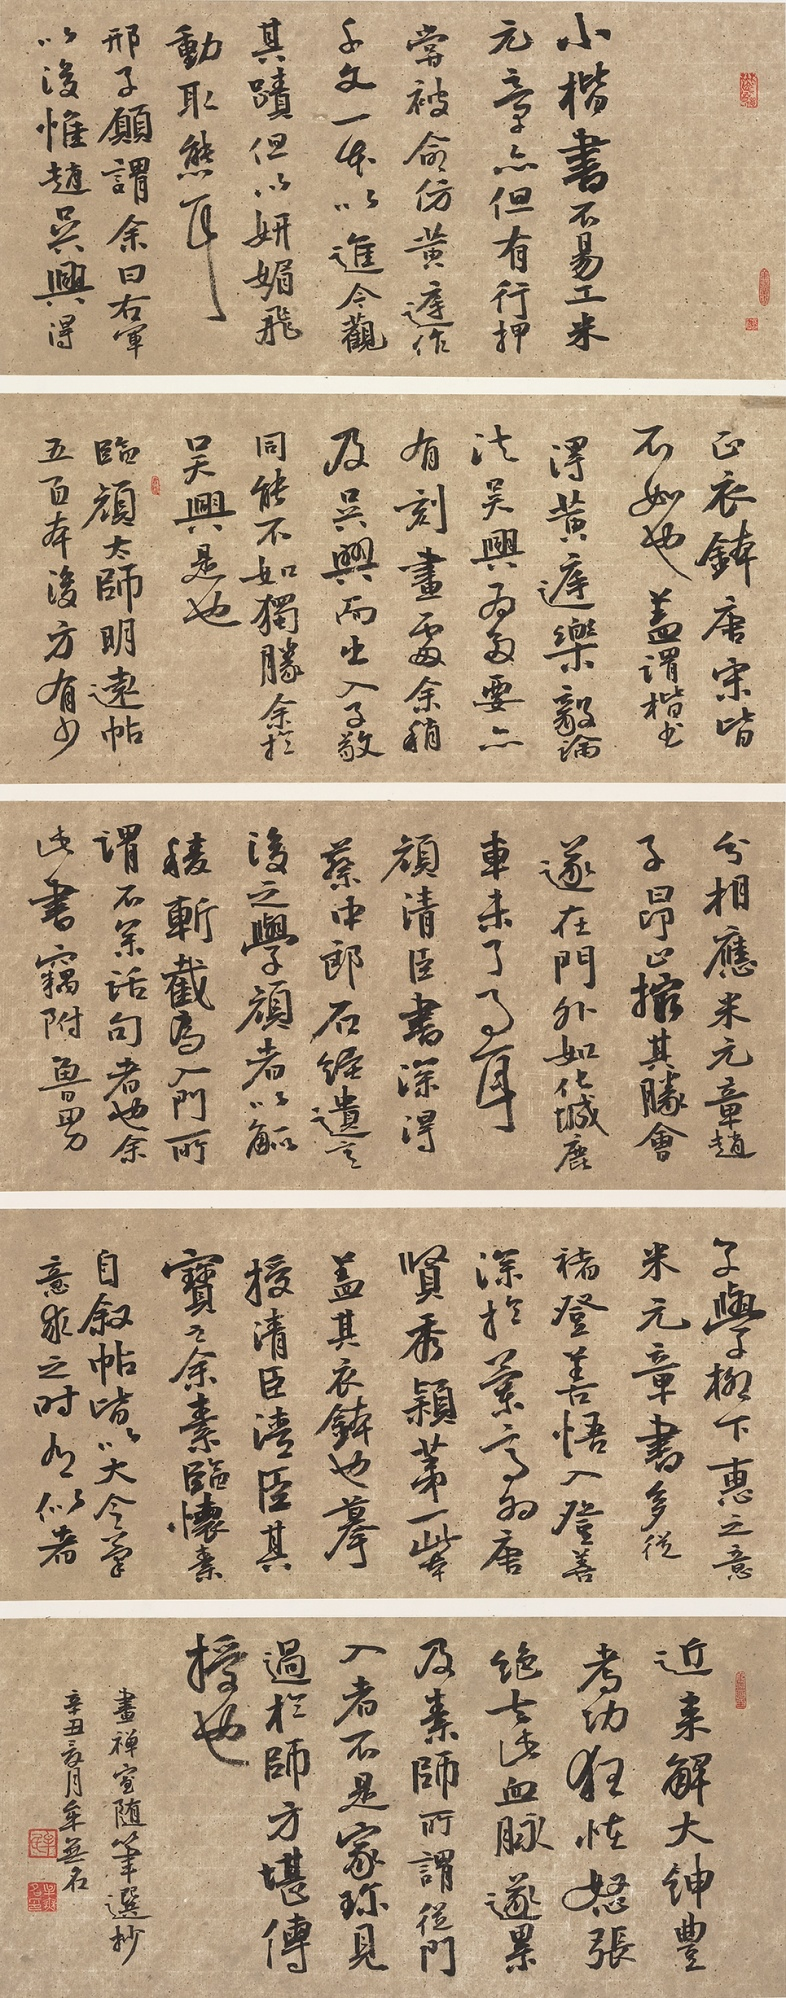 小楷書不易工米
元章亦但有行押
嘗被命仿黃庭作
千文一本以進今觀
其蹟但以妍媚飛
動取態耳
邢子願謂余曰右軍
以後惟趙吳興得
正衣鉢唐宋皆
不如也蓋謂楷書
得黃庭樂毅論
法吳興為多要亦
有刻畫處余稍
及吳興而出入子敬
同能不如獨勝余於
吳興是也
臨顏太師明遠帖
五百本後方有少
分相應米元章趙
子昂止撮其勝會
遂在門外如化城鹿
車未了事耳
顏清臣書深得
蔡中郎石經遺意
後之學顏者以觚
稜斬截為入門所
謂不參話句者也余
此書竊附魯男
子學柳下惠之意
米元章書多從
褚登善悟入登善
深於蘭亭為唐
賢秀穎第一此本
蓋其衣鉢也摹
授清臣清臣其
寶之余素臨懷素
自叙帖皆以大令筆
意求之時有似者
近來解大紳豐
考功狂怪怒張
絕去此血脉遂累
及素師所謂從門
入者不是家珍見
過於師方堪傳
授也
畫禪室随筆選抄
辛丑六月牟無名